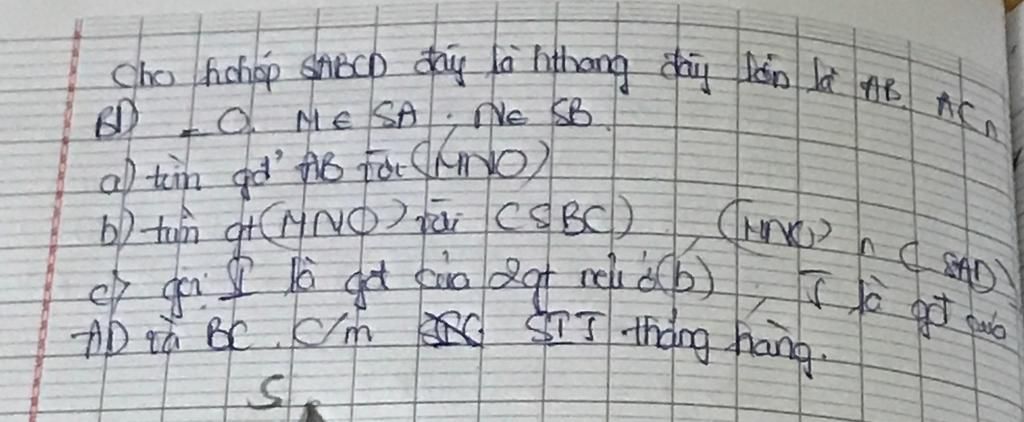 Cho hchóp SABCD đáy là hthang đáy lớn là AB. AC ∩
BD = O. M ∈ SA; N ∈ SB.
a) tìm gđ AB và (MNO)
b) tìm gt (MNO) và (SBC), (MNO) ∩ (SAD)
c) gọi I là gđ của 2gt nếu ở (b), J là gđ của
AD và BC. C/m SIJ thẳng hàng.
S